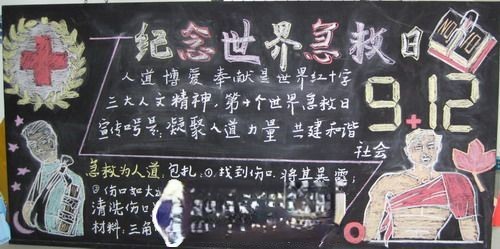 纪念世界急救日
人道 博爱 奉献是世界红十字
三大人文精神,第十个世界急救日
9.12
宣传口号:凝聚人道力量 共建和谐
社会
急救为人道 包扎:①.找到伤口,将其暴露;
②伤口如太
清洗伤口
材料:三角